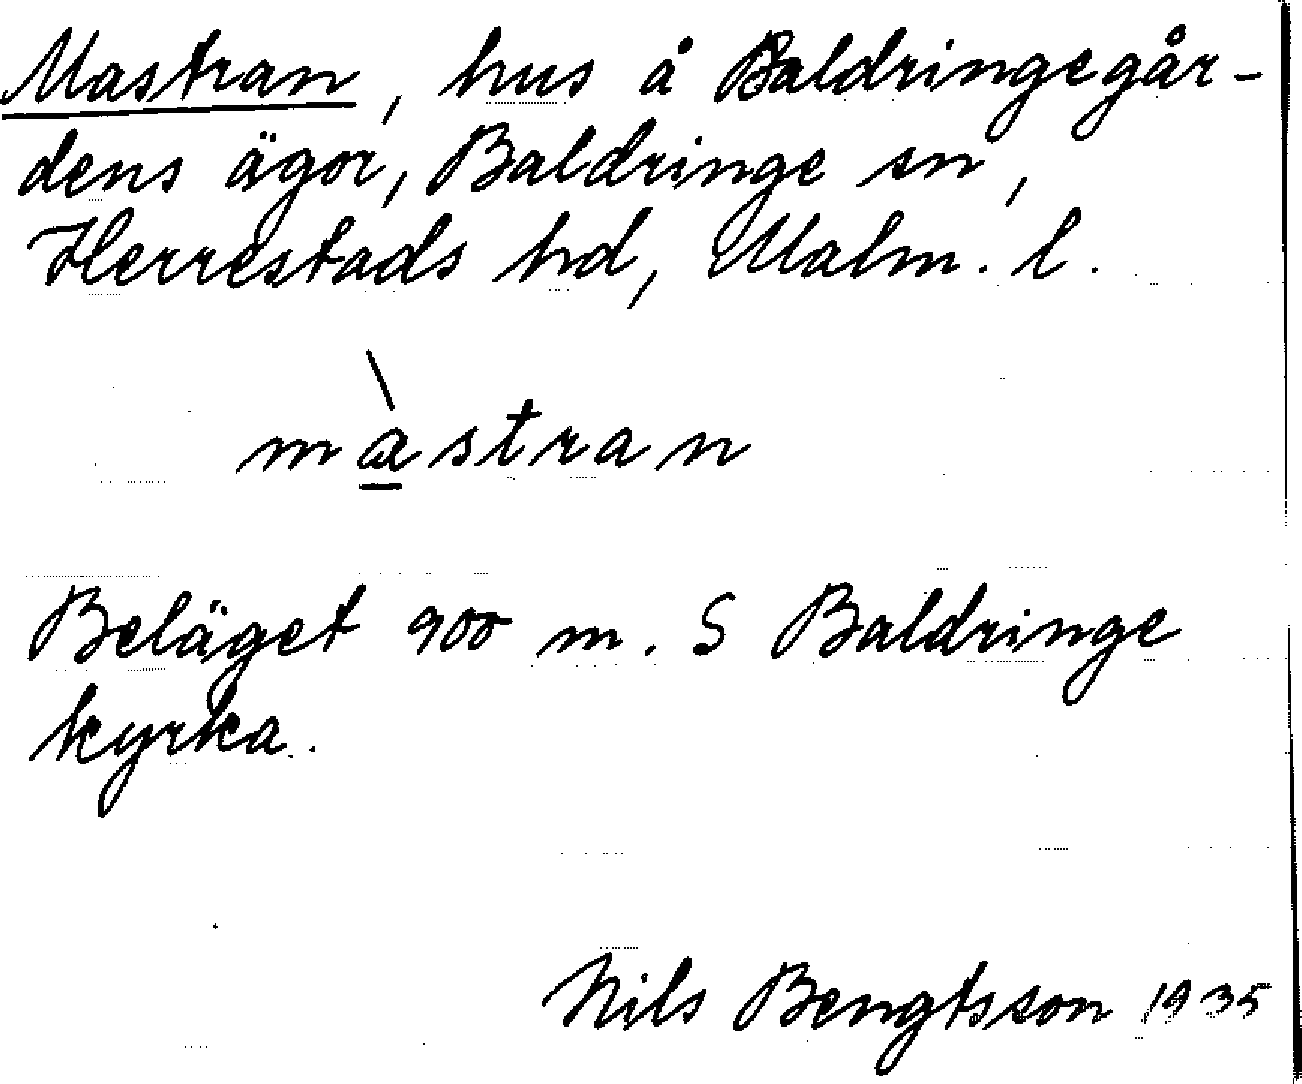 Mastran, hus å Baldringegår-
dens ägor, Baldringe sn,
Herrestads hd, Malm. l.
màstran
Beläget 900 m. S Baldringe
kyrka.
Nils Bengtsson 1935